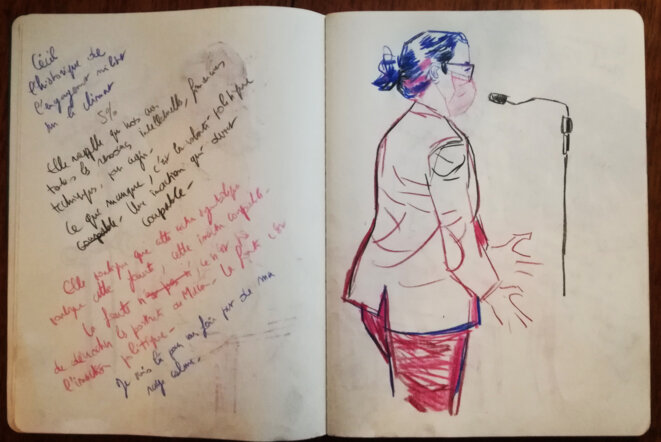 Cécil
l'historique de
l'engagement militant
sur le climat
5%
Elle rappelle qu'nous avons
toutes les ressources intellectuelles, financières
techniques, pour agir.
Ce qui manque, c'est la volonté politique
coupable. Une inaction qui devient
coupable.
Elle explique que cette action symbolique
souligne cette faute, cette inaction coupable.
La faute n'est pas
de décrocher les portraits de Macron. La faute c'est
l'inaction politique.
Je suis là pour vous faire part de ma
rage calme.